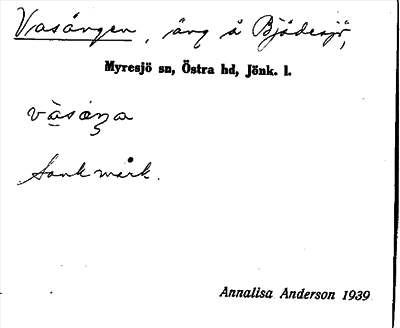 Vasången, äng å Bjädesjö,
Myresjö sn, Östra hd, Jönk. l.
Sankmark.
Annalisa Anderson 1939